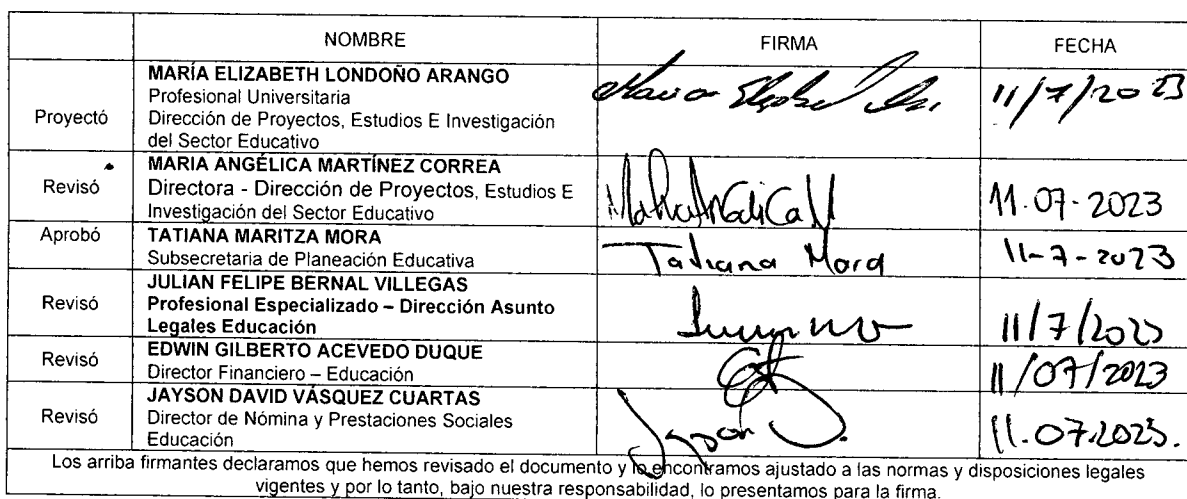 NOMBRE FIRMA FECHA
Proyectó
MARÍA ELIZABETH LONDOÑO ARANGO
Profesional Universitaria
Dirección de Proyectos, Estudios E Investigación
del Sector Educativo
11/7/2023
Revisó
MARIA ANGÉLICA MARTÍNEZ CORREA
Directora - Dirección de Proyectos, Estudios E
Investigación del Sector Educativo
11.07-2023
Aprobó
TATIANA MARITZA MORA
Subsecretaria de Planeación Educativa
Tatiana Mora
11-7-2023
Revisó
JULIAN FELIPE BERNAL VILLEGAS
Profesional Especializado – Dirección Asunto
Legales Educación
11/7/2023
Revisó
EDWIN GILBERTO ACEVEDO DUQUE
Director Financiero – Educación
11/07/2023
Revisó
JAYSON DAVID VÁSQUEZ CUARTAS
Director de Nómina y Prestaciones Sociales
Educación
Jayson D.
11.07.2023.
Los arriba firmantes declaramos que hemos revisado el documento y lo encontramos ajustado a las normas y disposiciones legales
vigentes y por lo tanto, bajo nuestra responsabilidad, lo presentamos para la firma.